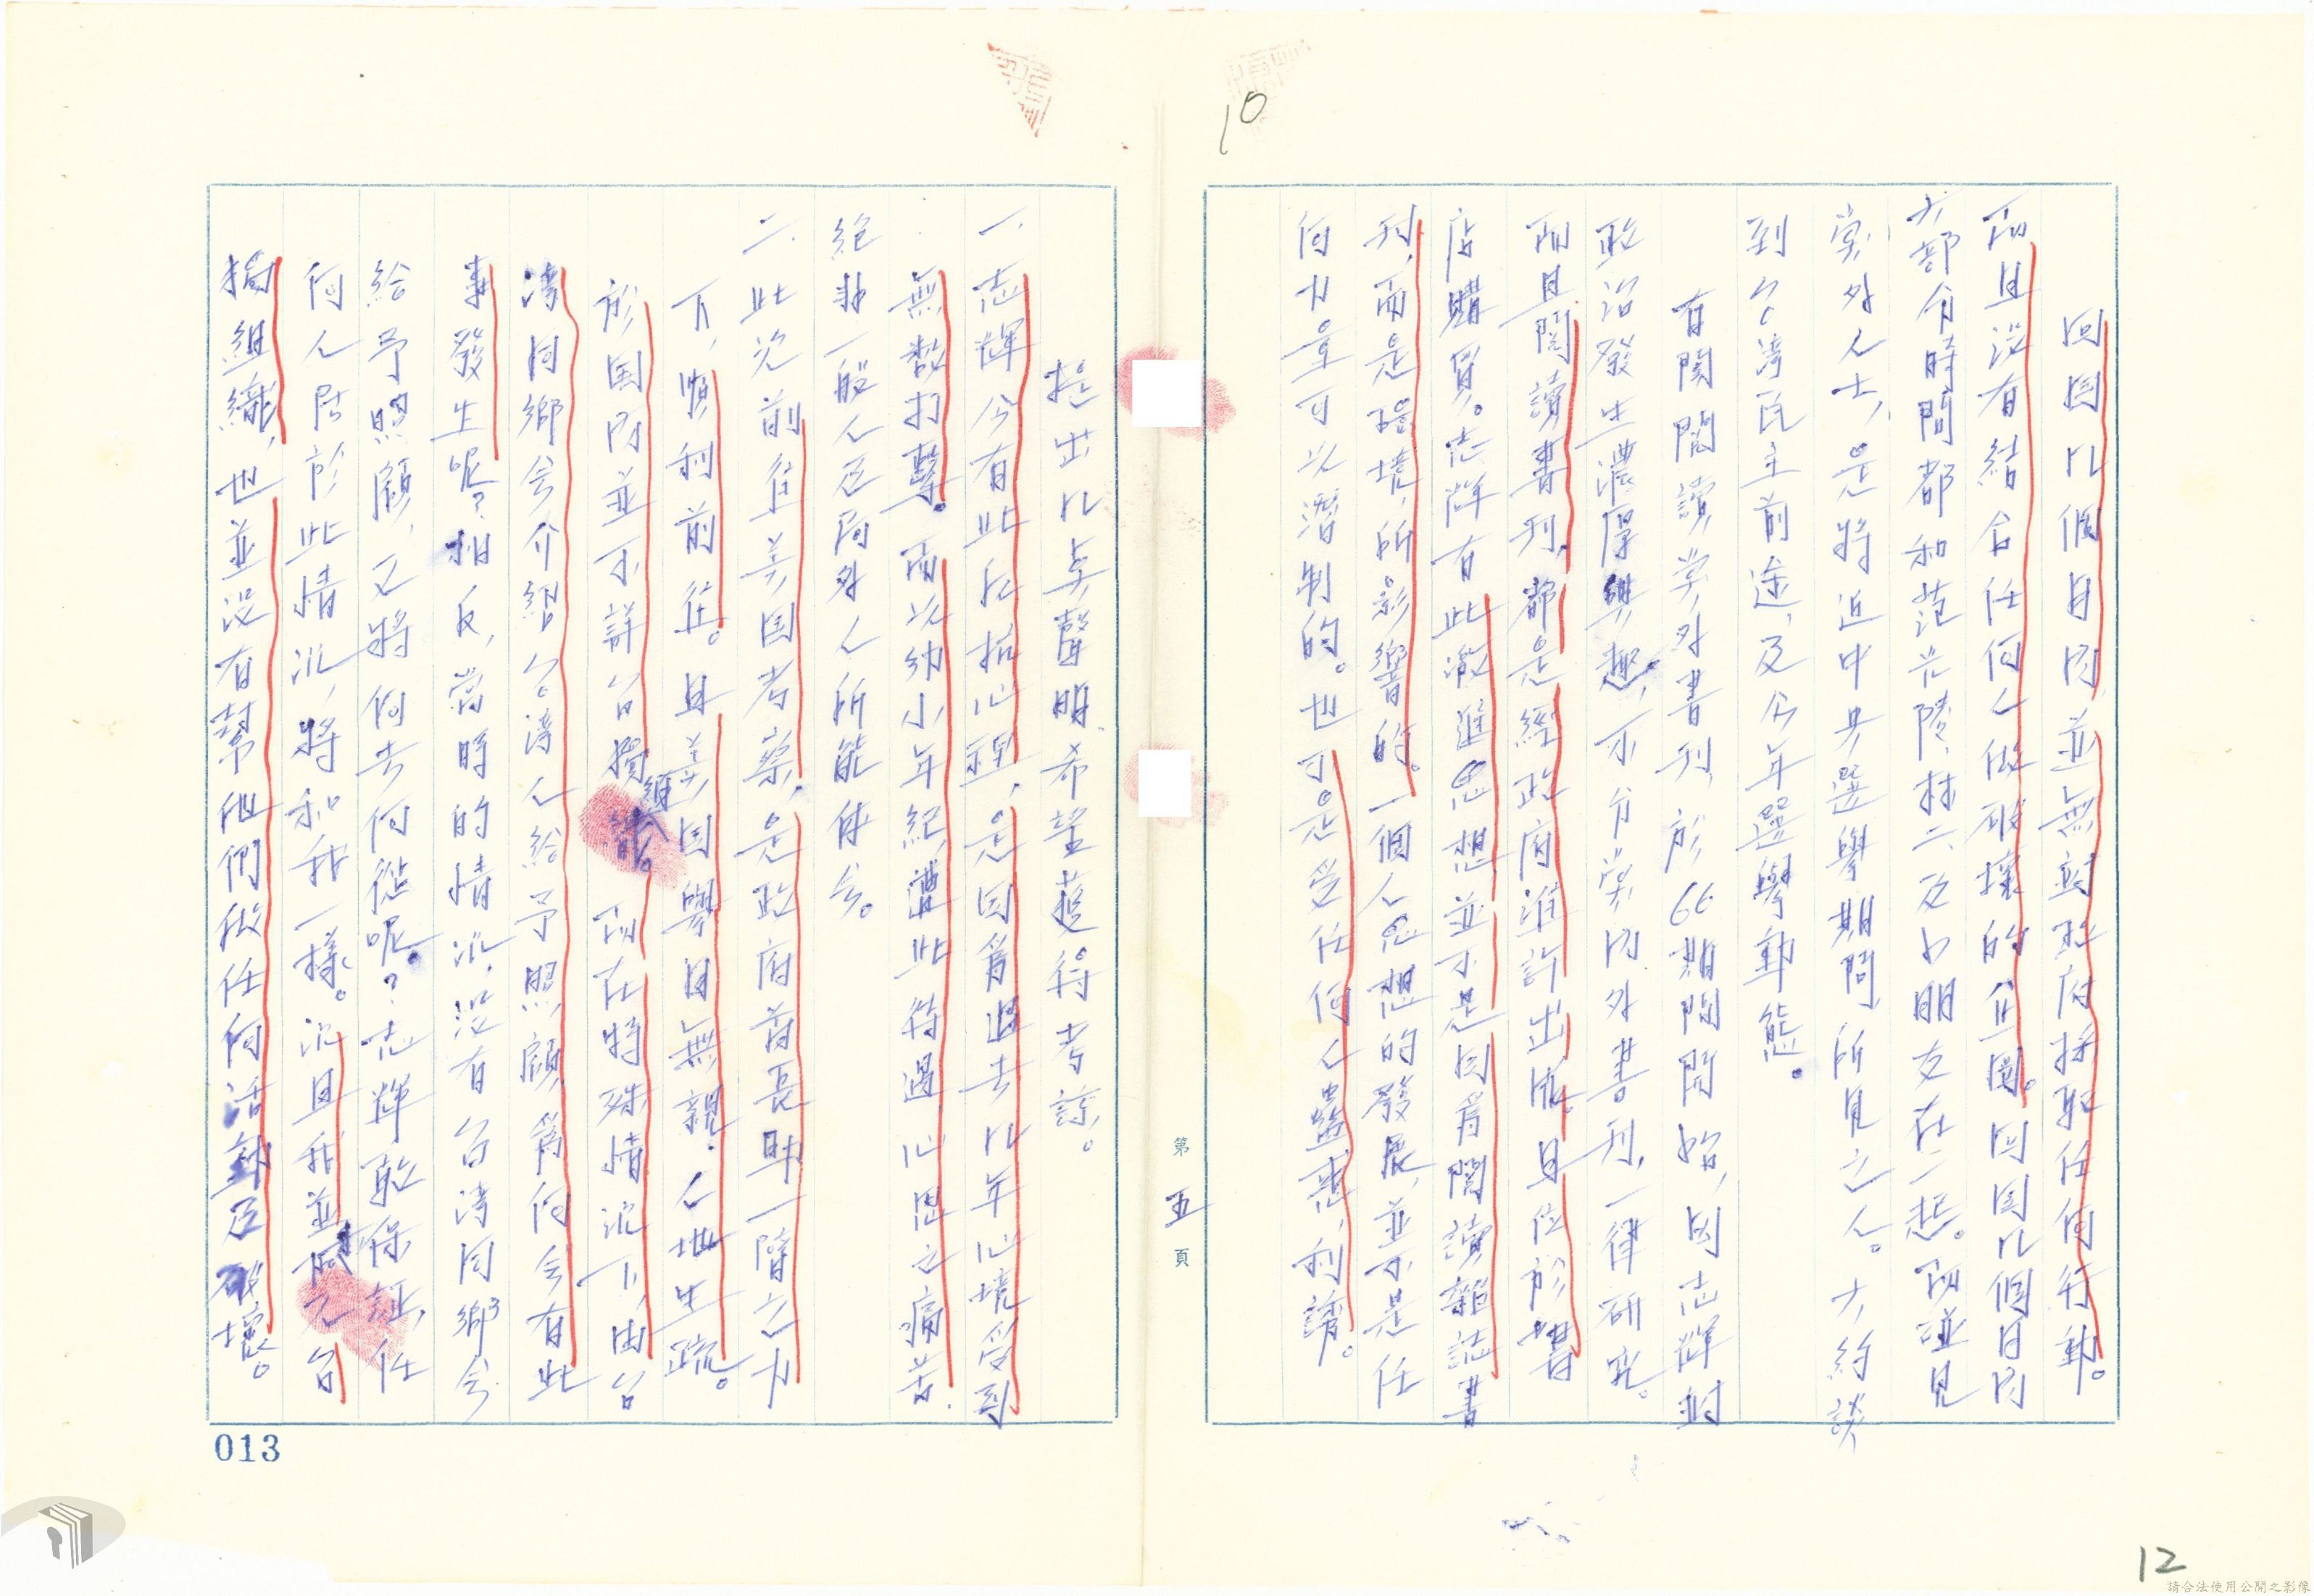 10
回国几個月內,並無對政府採取任何行動。
而且沒有結合任何人做破壞的企圖。因回国几個月內
大部分時間都和范光陵、林二及女朋友在一起。而碰見
党外人士,是將近中央選舉期間,所見之人。大約談
到台湾民主前途,及今年選舉動態。
有関閱讀党外書刊,於66期間開始,因志輝對
政治發生濃厚興趣,不分党內外書刊,一律研究。
而且閱讀書刊,都是經政府准許出版。且位於書
店購買。志輝有此激進思想,並不是因為閱讀雜誌書
刊,而是環境,所影響的。一個人思想的發展,並不是任
何力量可以潛制的。也可是受任何人蠱惑,利誘。
第五頁
提出几点聲明,希望獲得考諒。
一.志輝今有此反抗心理,是因為過去几年心境受到
無數打擊。而以幼小年紀,遭此待遇,心思之痛苦.
絕非一般人及局外人所能体会。
二.此次前往美国考察,是政府首長助一臂之力
下,順利前往。且美国舉目無親.人地生疏。
於国內並不詳台獨組織。而在特殊情況下,由台
湾同鄉会介紹台湾人給予照顧,為何会有此
事發生呢?相反,當時的情況,沒有台湾同鄉会
給予照顧,又將何去何從呢?志輝敢保証,任
何人居於此情況,將和我一樣。況且我並無向台
獨組織,也並沒有幫他們做任何活動及破壞。
013
12
請合法使用公開之影像